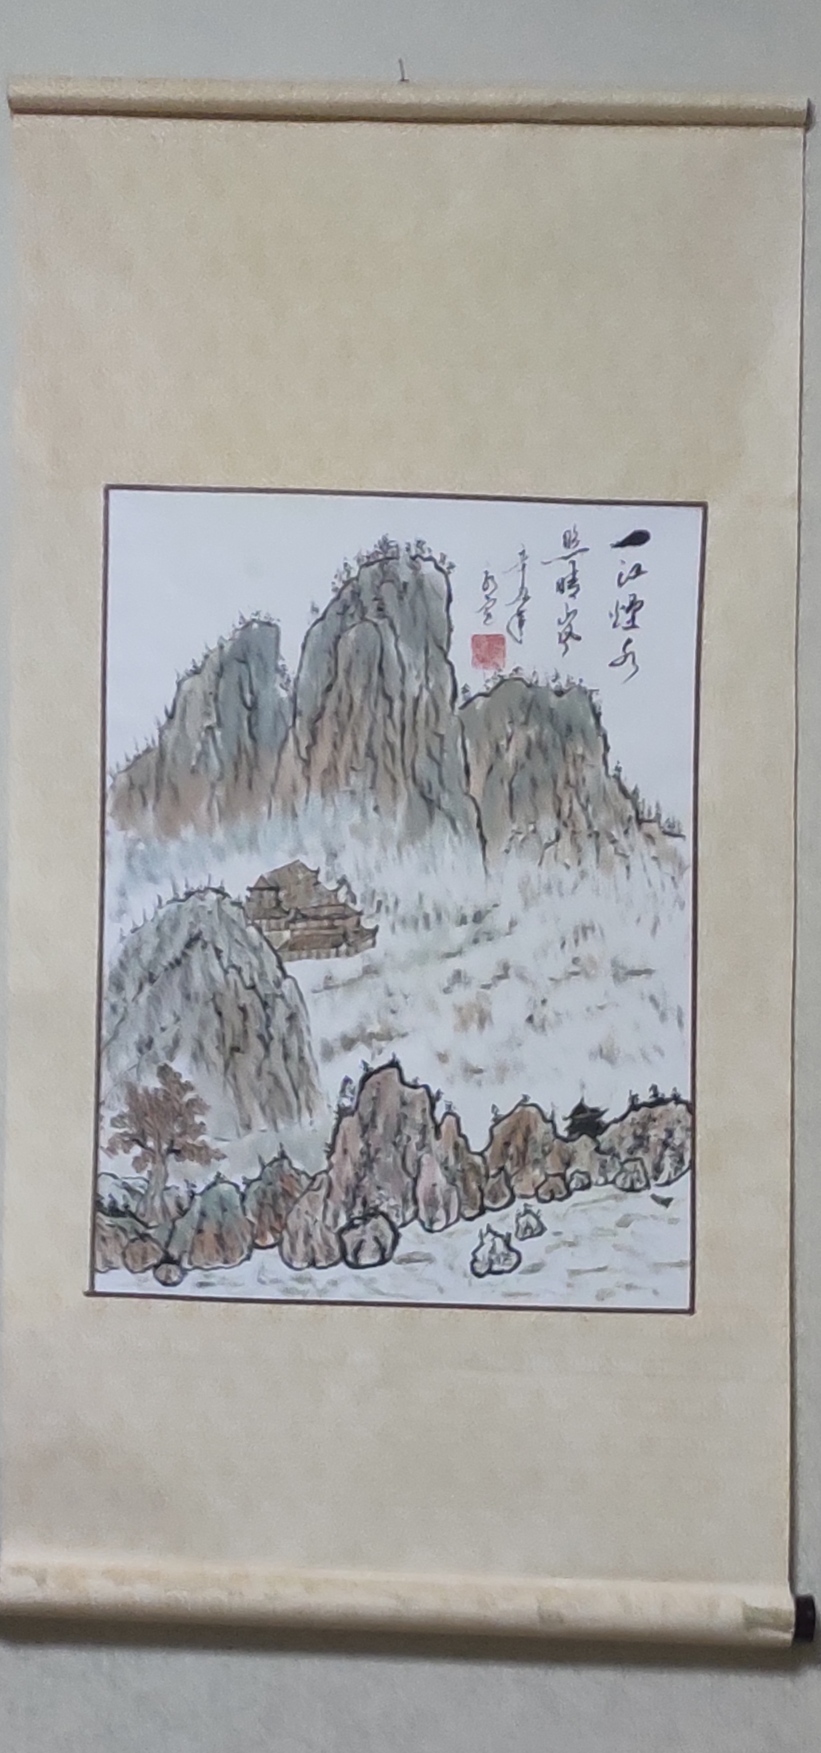 一江煙水
照晴嵐
辛丑年